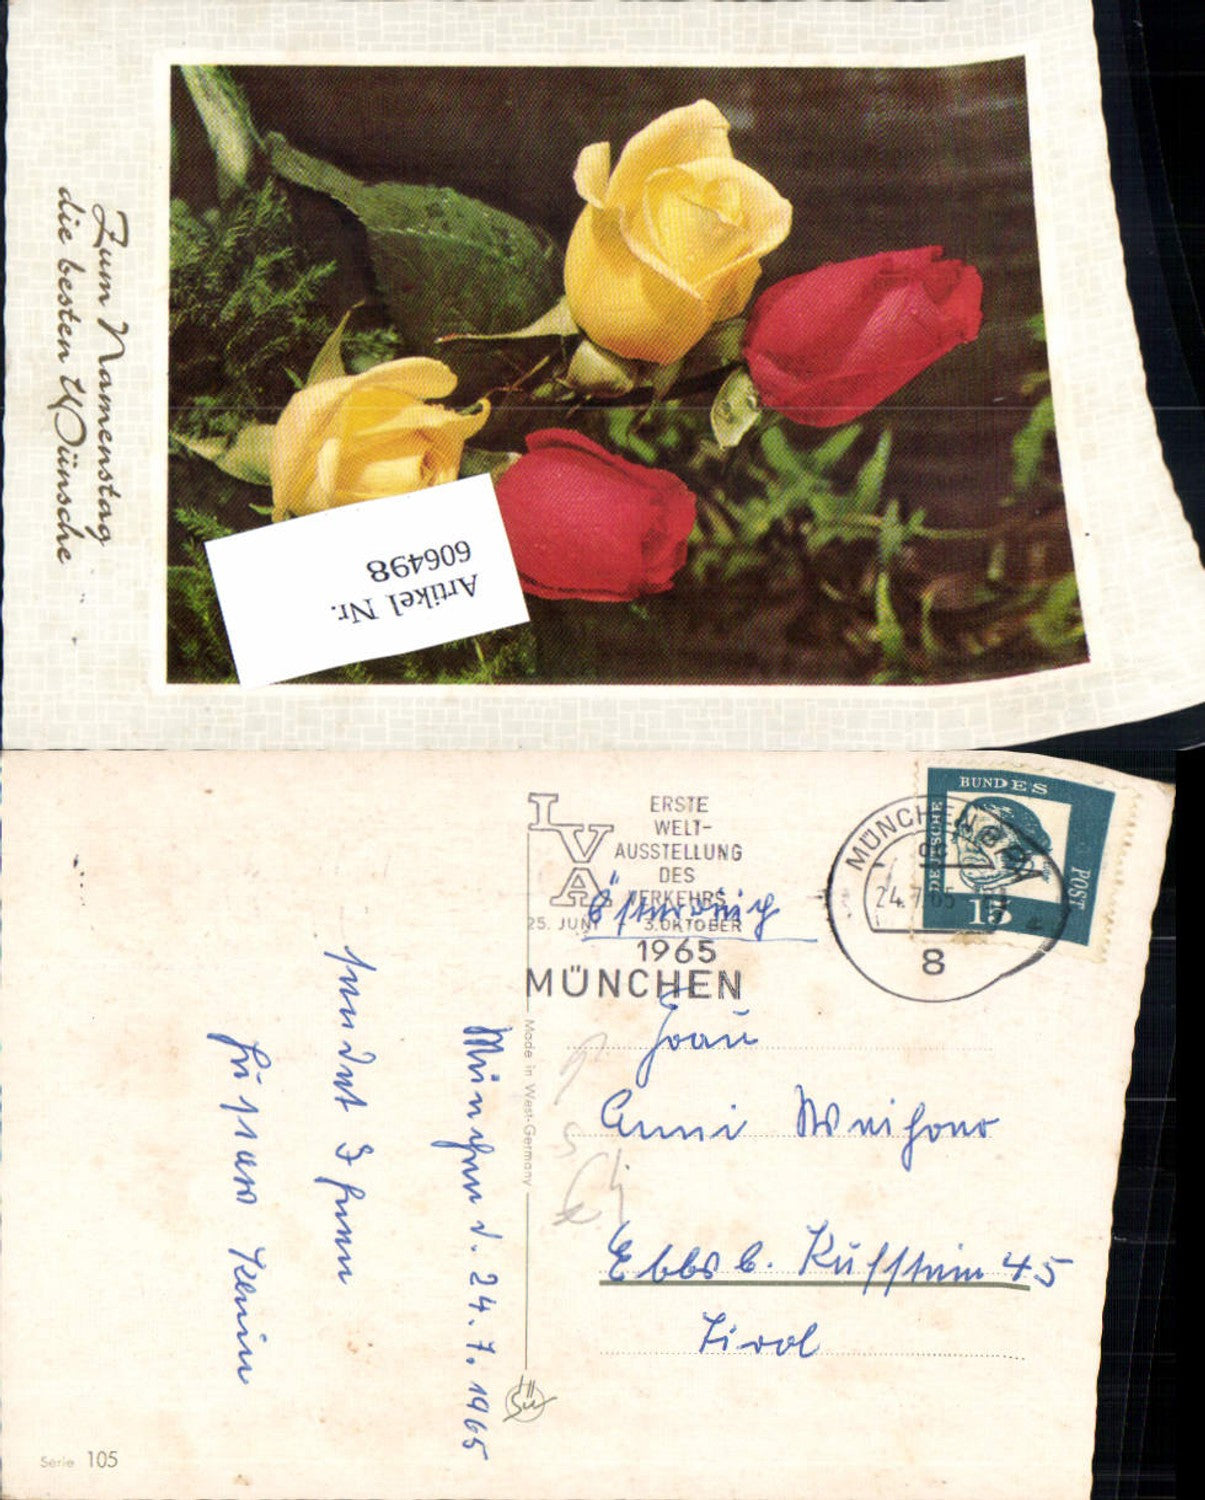 Zum Namenstag
die besten Wünsche
Artikel Nr.
606498
IVA
ERSTE
WELT-
AUSSTELLUNG
DES
VERKEHRS
25. JUNI 3. OKTOBER
1965
MÜNCHEN
MÜNCHEN
24.7.65
8
DEUTSCHE BUNDES POST
15
Österreich
Frau
Anni
Ebbs b. Kufstein 45
Tirol
München d. 24.7.1965
sendet Ihnen
Made in West-Germany
Serie 105